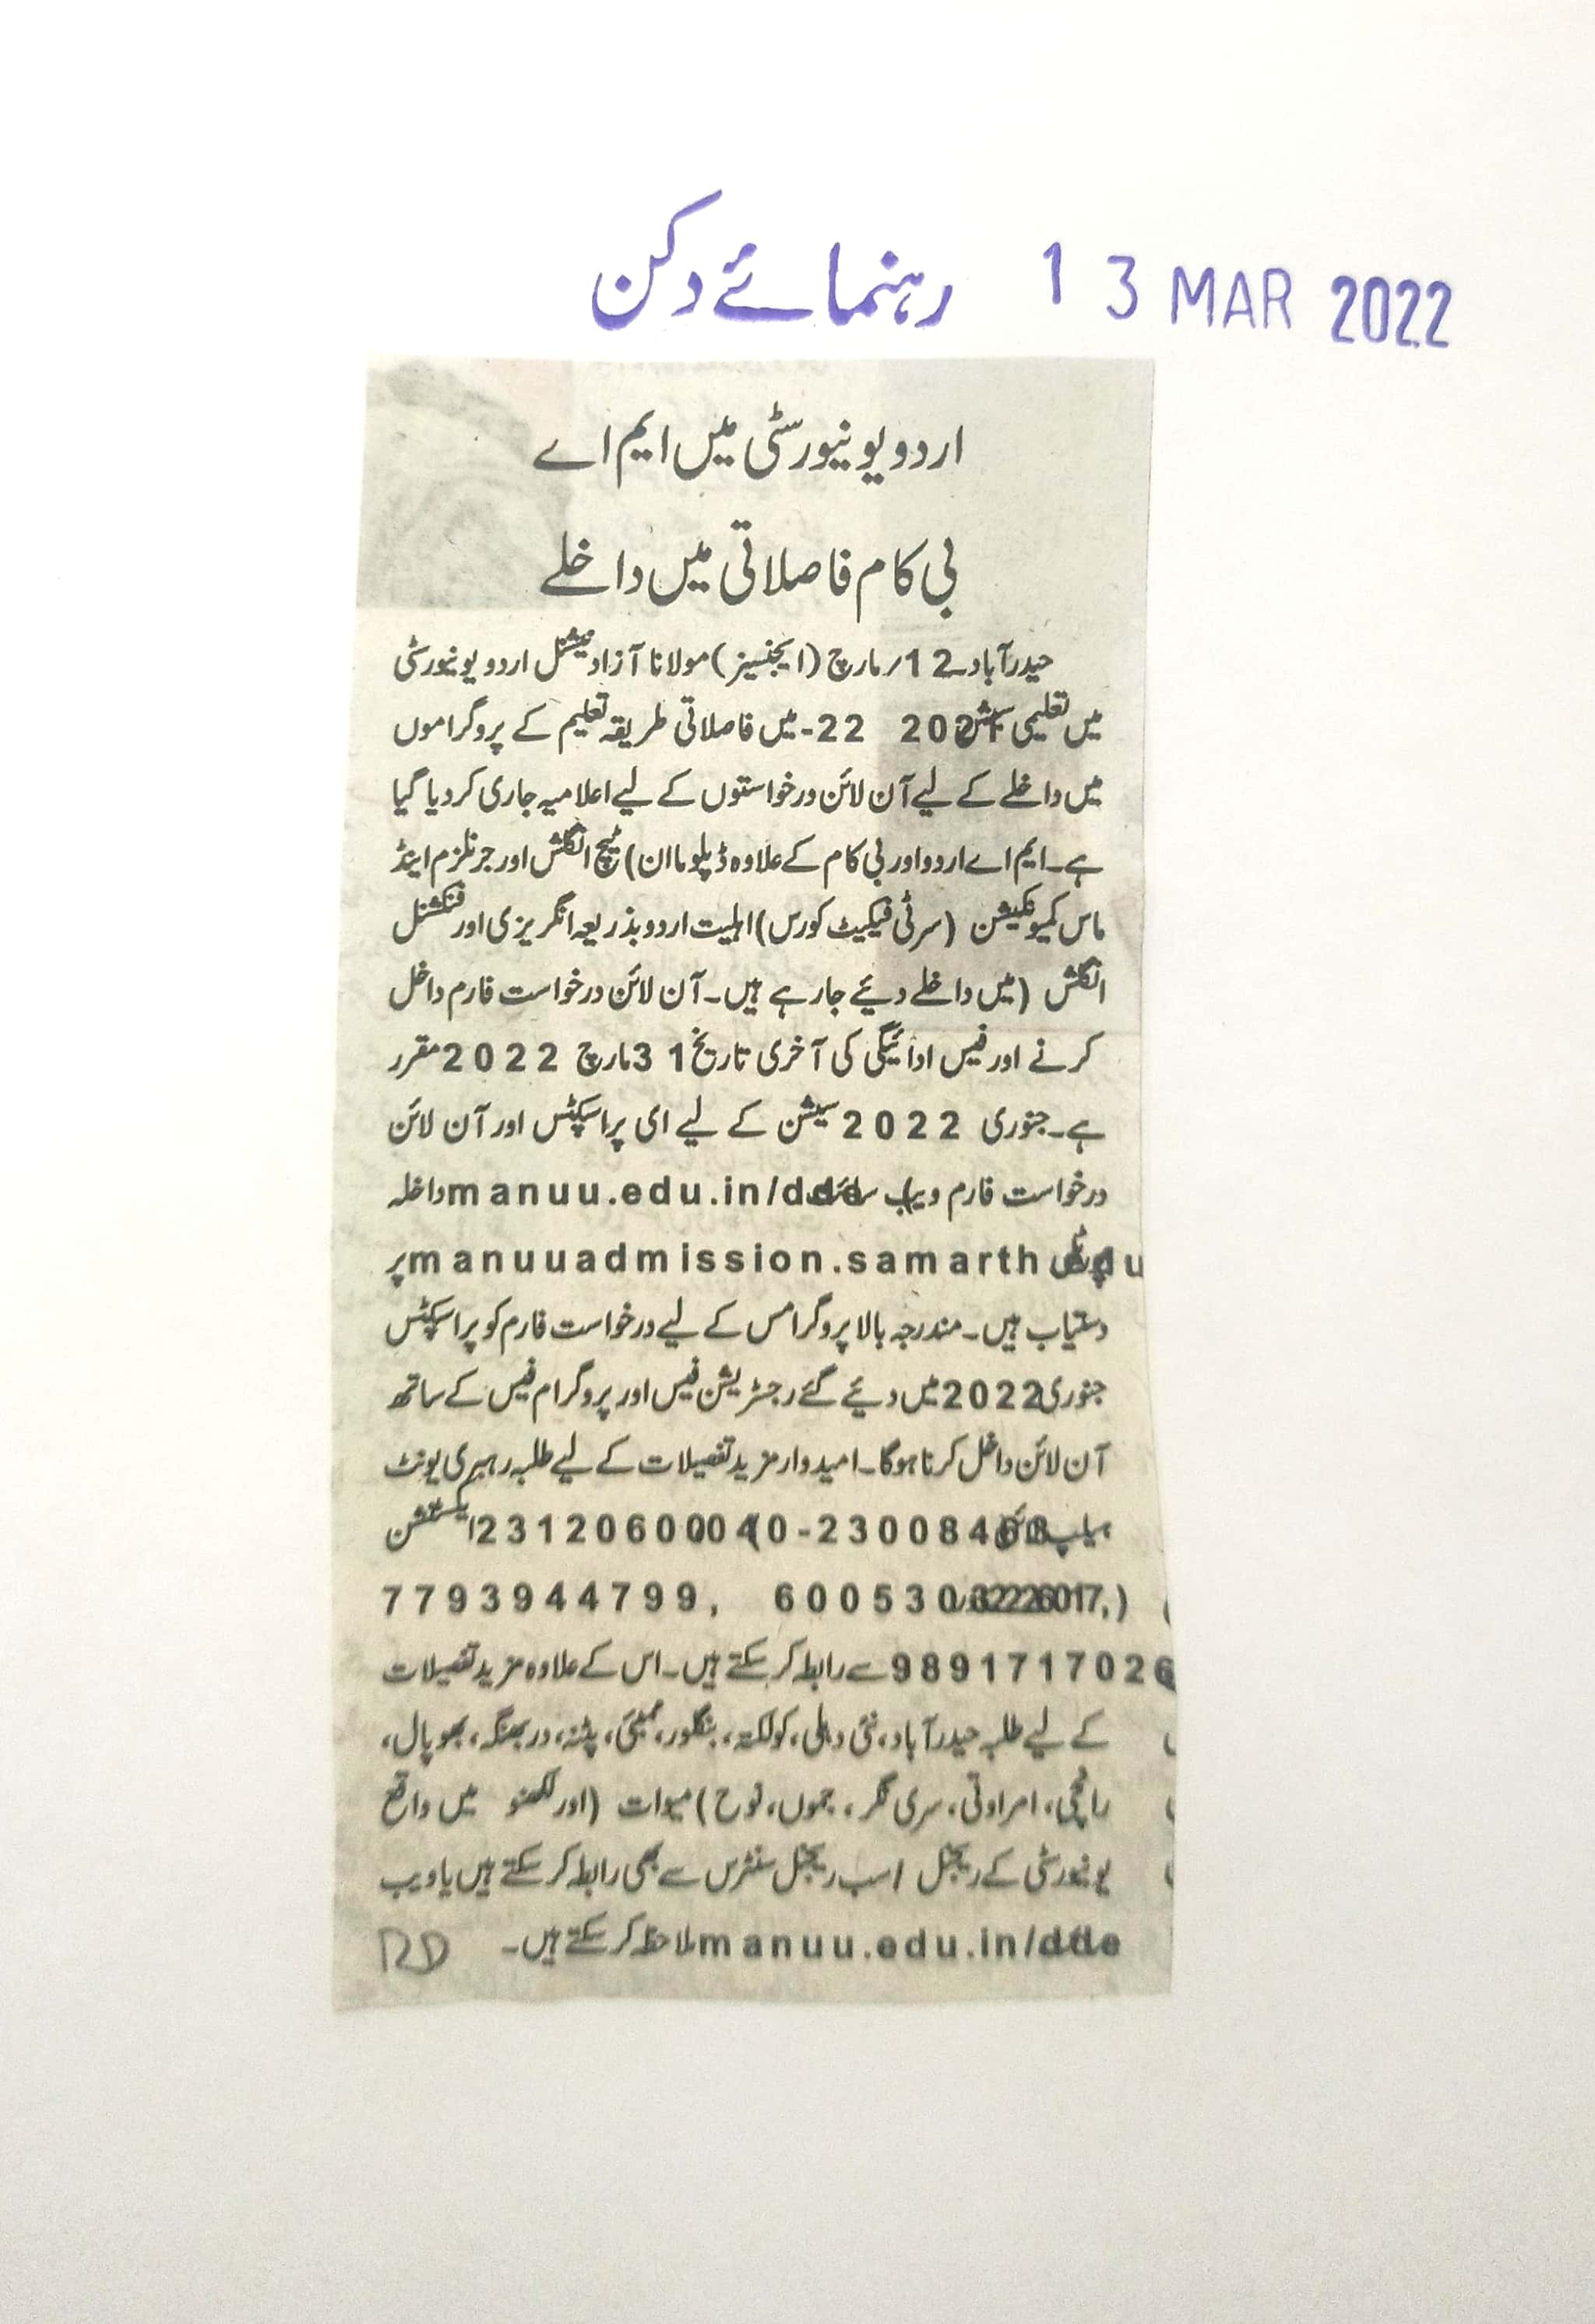 رہنمائے دکن 13 MAR 2022
اردو یونیورسٹی میں ایم اے
بی کام فاصلاتی میں داخلے
حیدرآباد۔12/مارچ (ایجنسیز) مولانا آزاد نیشنل اردو یونیورسٹی
میں تعلیمی سیشن 2021 22-میں فاصلاتی طریقہ تعلیم کے پروگراموں
میں داخلے کے لیے آن لائن درخواستوں کے لیے اعلامیہ جاری کردیا گیا
ہے۔ایم اے اردو اور بی کام کے علاوہ ڈپلوما ان) ٹیچ انگلش اور جرنلزم اینڈ
ماس کمیونکیشن (سرٹی فیکیٹ کورس) اہلیت اردو بذریعہ انگریزی اور فنکشنل
انگلش (میں داخلے دیئے جارہے ہیں۔آن لائن درخواست فارم داخل
کرنے اور فیس ادائیگی کی آخری تاریخ 31مارچ 2022مقرر
ہے۔جنوری 2022سیشن کے لیے ای پراسپکٹس اور آن لائن
درخواست فارم ویب سائٹ manuu.edu.in/ddeداخلہ
پورٹل manuuadmission.samarth.eduپر
دستیاب ہیں۔مندرجہ بالا پروگرامس کے لیے درخواست فارم کو پراسپکٹس
جنوری2022میں دیئے گئے رجسٹریشن فیس اور پروگرام فیس کے ساتھ
آن لائن داخل کرنا ہوگا۔امیدوار مزید تفصیلات کے لیے طلبہ رہبری یونٹ
ہیلپ لائن 040-23008463 23120600ایکسٹنشن
7793944799, 600530
9891717026سے رابطہ کرسکتے ہیں۔اس کے علاوہ مزید تفصیلات
کے لیے طلبہ حیدرآباد، نئی دہلی، کولکتہ، بنگلور، ممبئی، پٹنہ، دربھنگہ، بھوپال،
رانچی، امراوتی، سری نگر، جموں، نوح) میوات (اور لکھنو میں واقع
یونیورسٹی کے ریجنل /سب ریجنل سنٹرس سے بھی رابطہ کرسکتے ہیں یا ویب
manuu.edu.in/ddeملاحظہ کرسکتے ہیں۔ RD